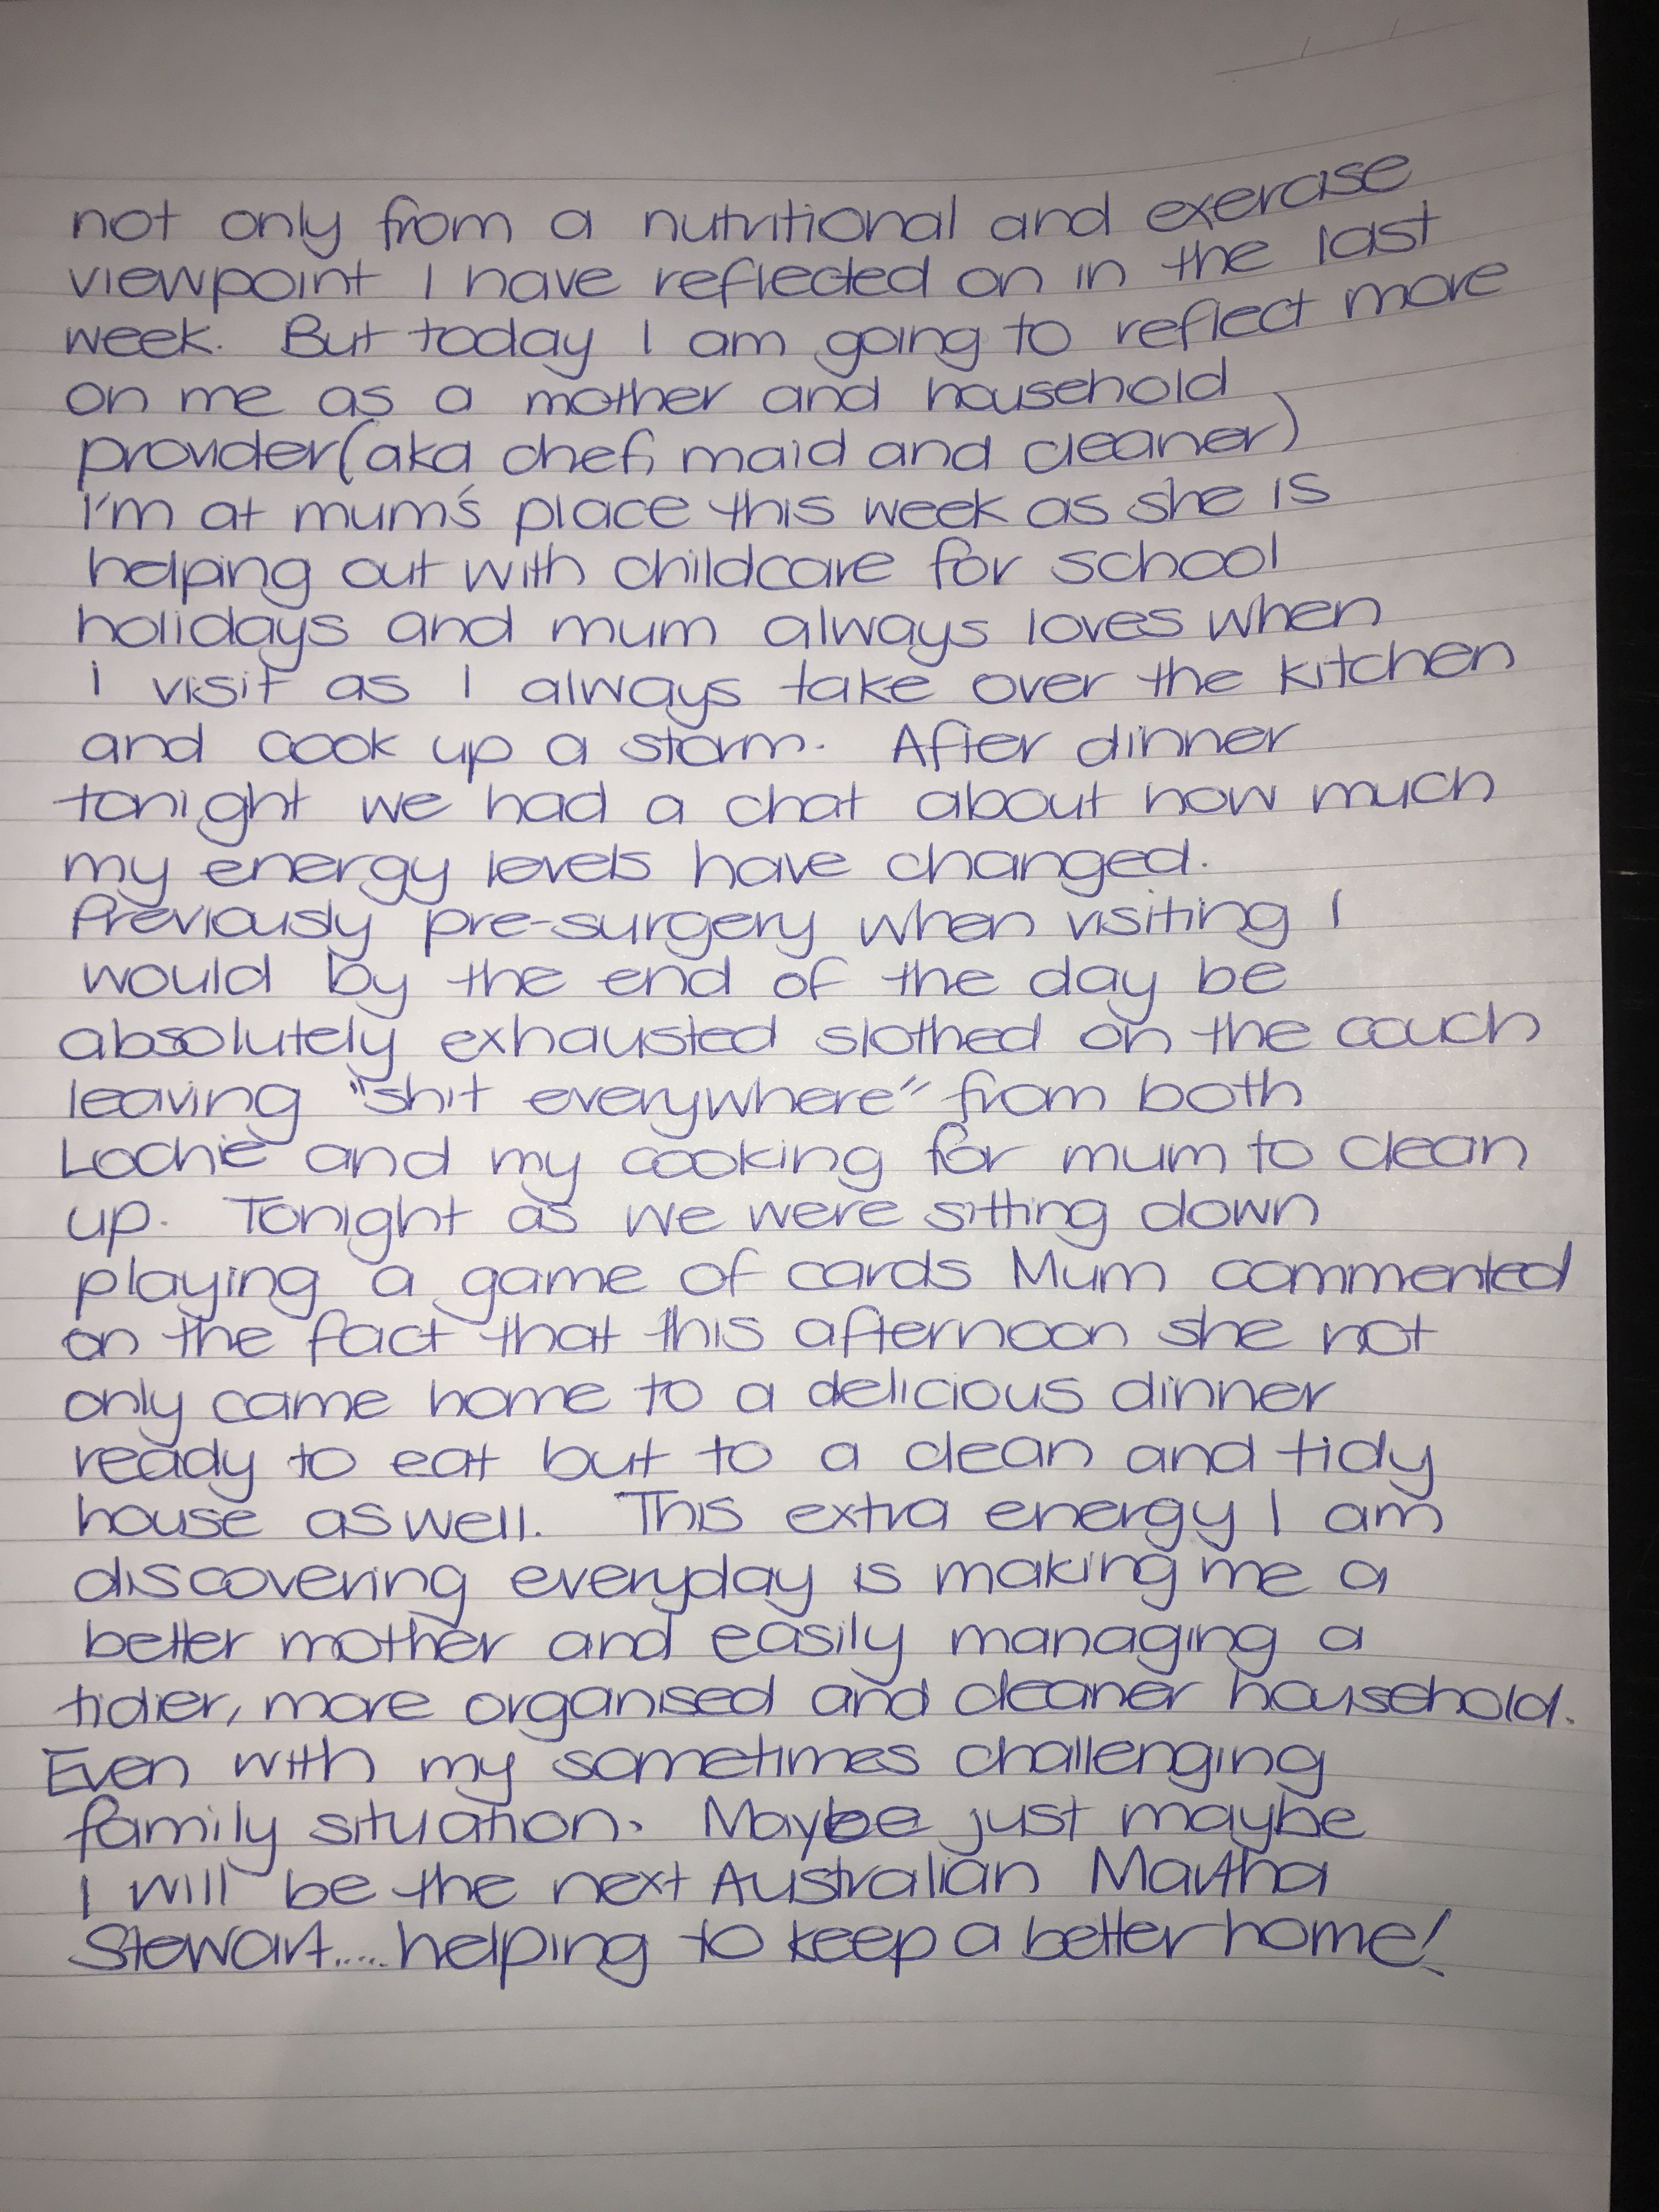 not only from a nutritional and exercise
viewpoint I have reflected on in the last
week. But today I am going to reflect more
on me as a mother and household
provider (aka chef, maid and cleaner)
I'm at mum's place this week as she is
helping out with childcare for school
holidays and mum always loves when
I visit as I always take over the kitchen
and cook up a storm. After dinner
tonight we had a chat about how much
my energy levels have changed.
Previously pre-surgery when visiting I
would by the end of the day be
absolutely exhausted slothed on the couch
leaving "shit everywhere" from both
Lochie and my cooking for mum to clean
up. Tonight as we were sitting down
playing a game of cards Mum commented
on the fact that this afternoon she not
only came home to a delicious dinner
ready to eat but to a clean and tidy
house aswell. This extra energy I am
discovering everyday is making me a
better mother and easily managing a
tidier, more organised and cleaner household.
Even with my sometimes challenging
family situation. Maybe just maybe
I will be the next Australian Martha
Stewart..... helping to keep a better home!